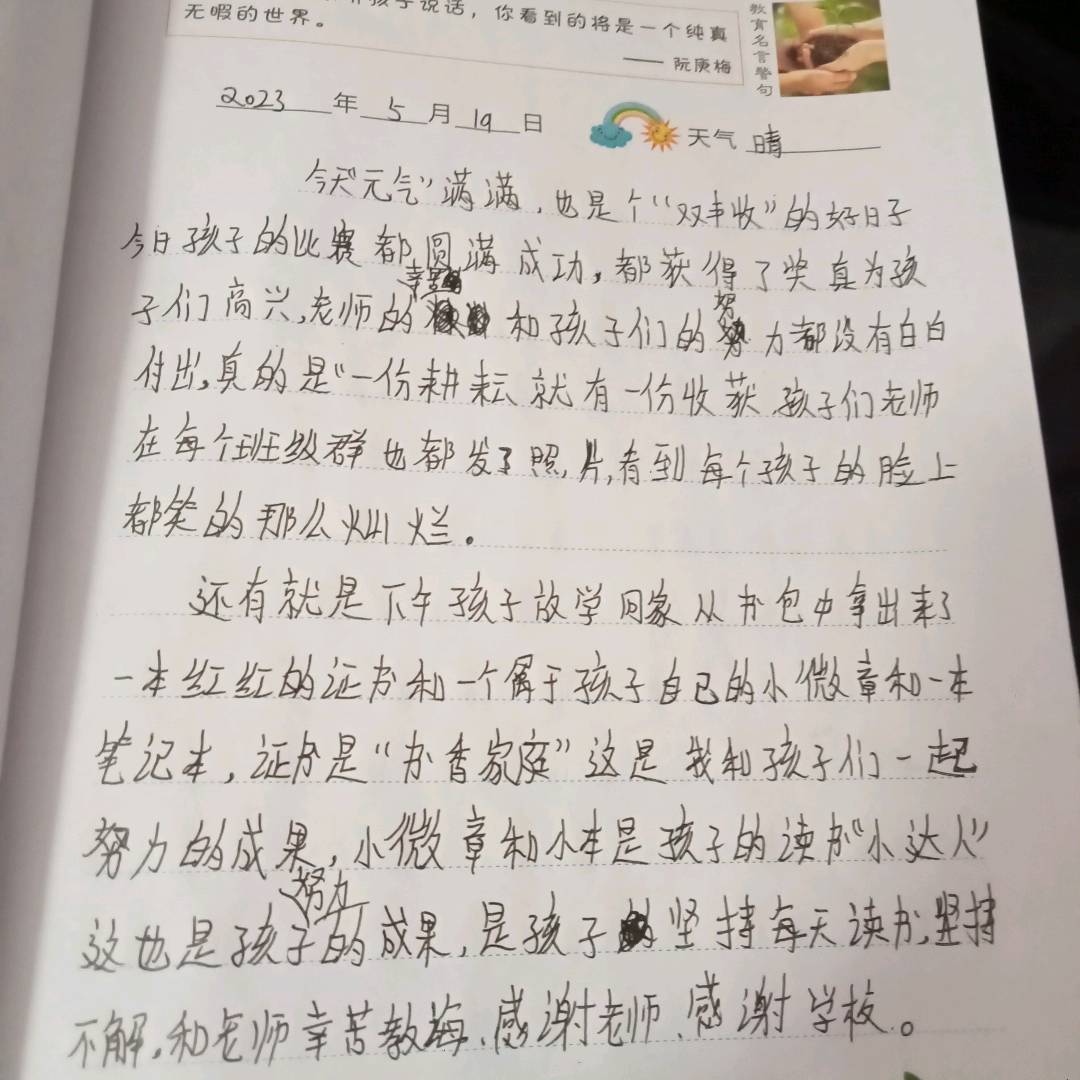 说话，你看到的将是一个纯真
无暇的世界。
—— 阮庚梅
教育名言警句
2023年5月19日
天气 晴
今天“元气”满满，也是个“双丰收”的好日子
今日孩子的比赛都圆满成功，都获得了奖真为孩
子们高兴，老师的辛苦和孩子们的努力都没有白白
付出，真的是“一份耕耘就有一份收获，孩子们老师
在每个班级群也都发了照片，看到每个孩子的脸上
都笑的那么灿烂。
还有就是下午孩子放学回家从书包中拿出来了
一本红红的证书和一个属于孩子自己的小微章和一本
笔记本，证书是“书香家庭”这是我和孩子们一起
努力的成果，小微章和小本是孩子的读书“小达人”
这也是孩子努力的成果，是孩子的坚持每天读书，坚持
不解，和老师辛苦教诲、感谢老师、感谢学校。